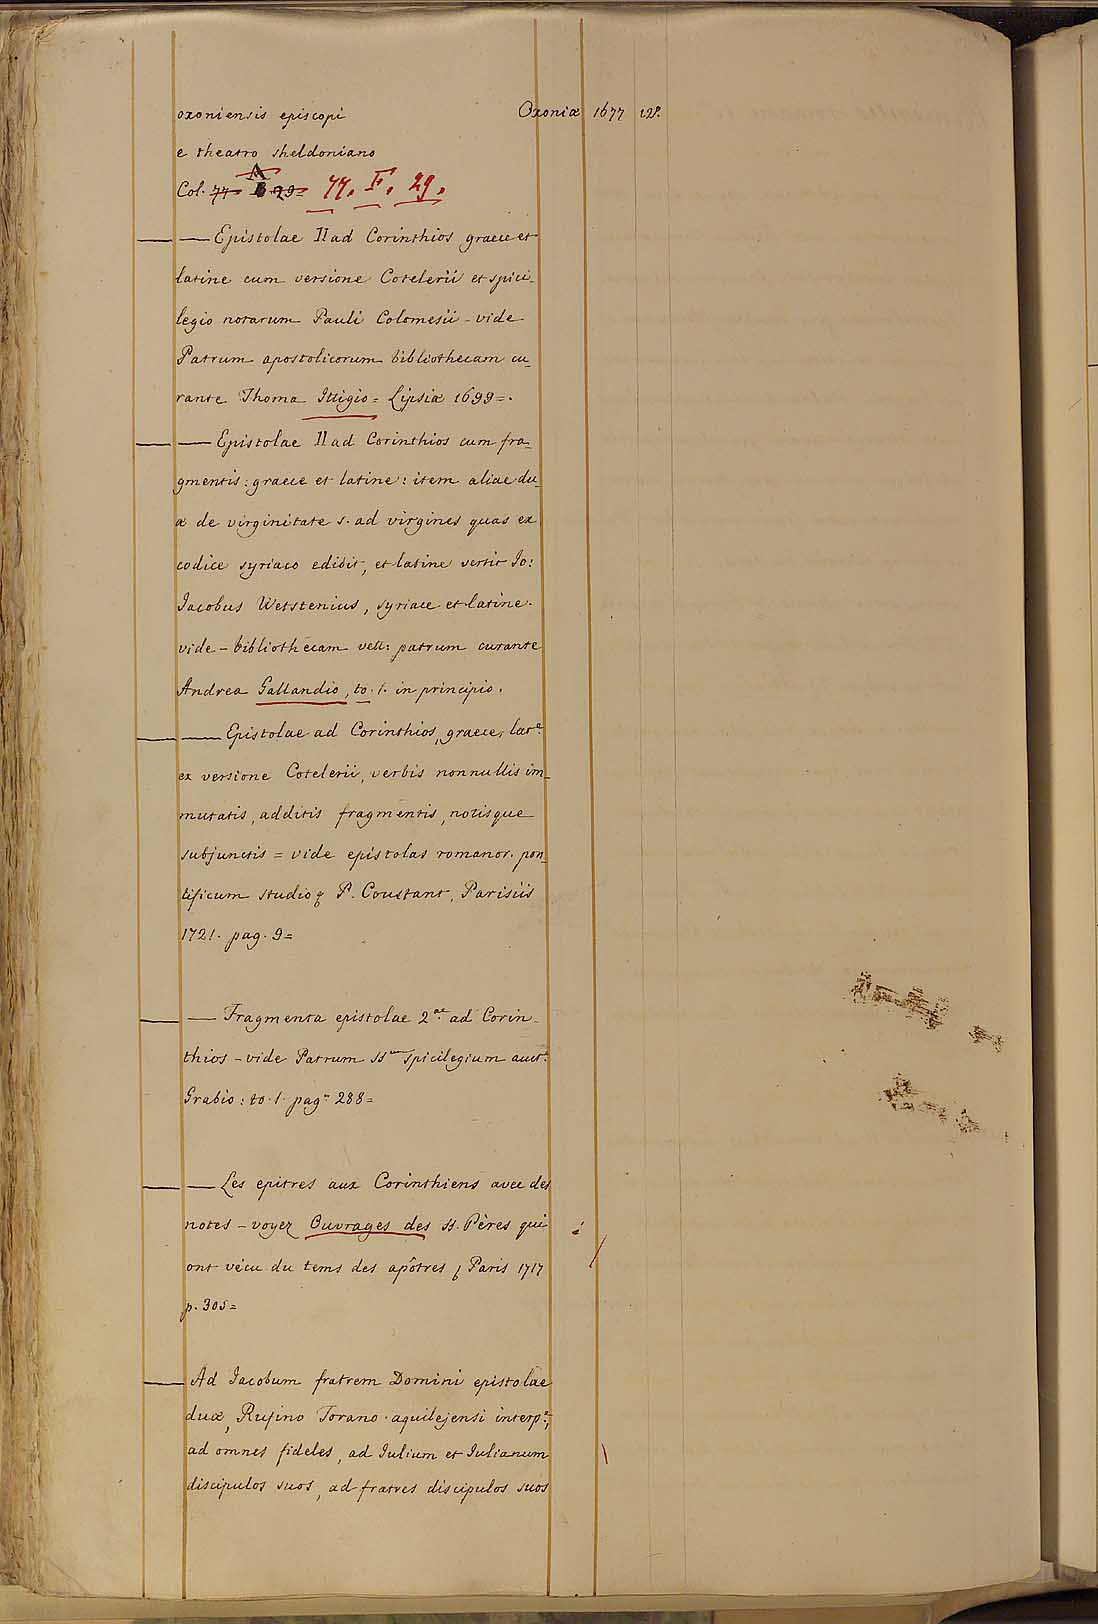 oxoniensis episcopi Oxoniæ 1677 12º.
e theatro sheldoniano
A
Col. 77 B 29= 77. F. 29.
— — Epistolae II ad Corinthios graece et
latine cum versione Cotelerii et spici-
legio notarum Pauli Colomesii - vide
Patrum apostolicorum bibliothecam cu-
rante Thoma Ittigio = Lipsiæ 1699=.
— — Epistolae II ad Corinthios cum fra-
gmentis: graece et latine: item aliae du-
æ de virginitate s. ad virgines quas ex
codice syriaco edidit, et latine vertit Jo:
Jacobus Wetstenius, syriace et latine.
vide - bibliothecam vett: patrum curante
Andrea Gallandio, to. 1. in principio.
— — Epistolae ad Corinthios, graece, latᵉ.
ex versione Cotelerii, verbis nonnullis im-
mutatis, additis fragmentis, notisque
subjunctis = vide epistolas romanor. pon-
tificum studio P. Coustant, Parisiis
1721. pag. 9=
— — Fragmenta epistolae 2ᵃᵉ ad Corin-
thios - vide Patrum SSᵘᵐ spicilegium auctᵉ
Grabio: to. 1. pagᵃ 288=
— — Les epitres aux Corinthiens avec des
notes - voyez Ouvrages des SS. Pères qui
ont vécu du tems des apôtres Paris 1717
p. 305=
— Ad Jacobum fratrem Domini epistolae
duæ, Rufino Torano aquilejensi interpᵉ,
ad omnes fideles, ad Julium et Julianum
discipulos suos, ad fratres discipulos suos